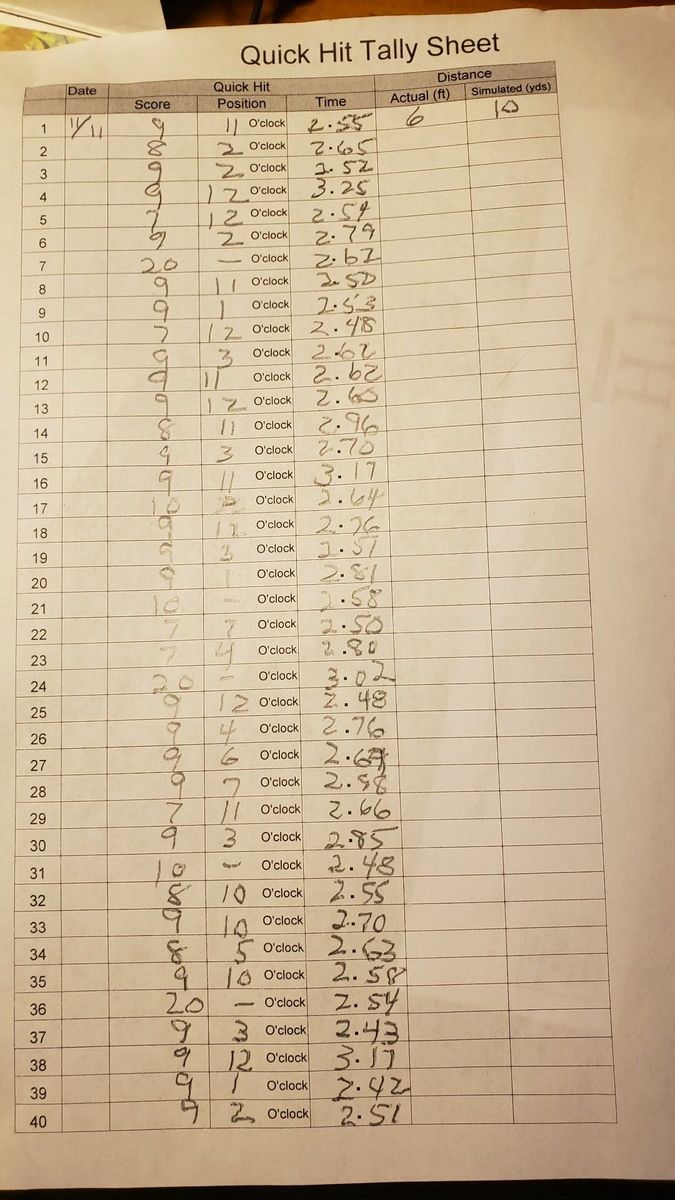 Quick Hit Tally Sheet
Date Quick Hit Distance
Score Position Time Actual (ft) Simulated (yds)
1 11/11 9 11 O'clock 2.55 6 10
2 8 2 O'clock 2.65
3 9 2 O'clock 2.52
4 9 12 O'clock 3.25
5 7 12 O'clock 2.54
6 9 2 O'clock 2.79
7 20 — O'clock 2.62
8 9 11 O'clock 2.50
9 9 1 O'clock 2.53
10 7 12 O'clock 2.48
11 9 3 O'clock 2.62
12 9 11 O'clock 2.62
13 9 12 O'clock 2.60
14 8 11 O'clock 2.96
15 9 3 O'clock 2.70
16 9 11 O'clock 3.17
17 10 O'clock 2.64
18 9 12 O'clock 2.76
19 9 3 O'clock 2.51
20 9 1 O'clock 2.81
21 10 - O'clock 2.58
22 7 7 O'clock 2.50
23 7 4 O'clock 2.80
24 20 - O'clock 3.02
25 9 12 O'clock 2.48
26 9 4 O'clock 2.76
27 9 6 O'clock
28 9 7 O'clock 2.58
29 7 11 O'clock 2.66
30 9 3 O'clock 2.85
31 10 - O'clock 2.48
32 8 10 O'clock 2.55
33 9 10 O'clock 2.70
34 8 5 O'clock 2.63
35 9 10 O'clock 2.58
36 20 — O'clock 2.54
37 9 3 O'clock 2.43
38 9 12 O'clock 3.17
39 9 1 O'clock 2.42
40 9 2 O'clock 2.51